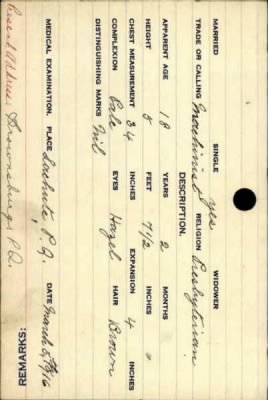 MARRIED SINGLE yes WIDOWER
TRADE OR CALLING Machinist RELIGION Presbyterian
DESCRIPTION.
APPARENT AGE 18 YEARS 2 MONTHS
HEIGHT 5 FEET 7 1/2 INCHES
CHEST MEASUREMENT 34 INCHES EXPANSION 4 INCHES
COMPLEXION Pale EYES Hazel HAIR Brown
DISTINGUISHING MARKS Nil
MEDICAL EXAMINATION. PLACE Lachute, P.Q. DATE March 5, 1916
Present Address Brownsburg, P.Q.
REMARKS: